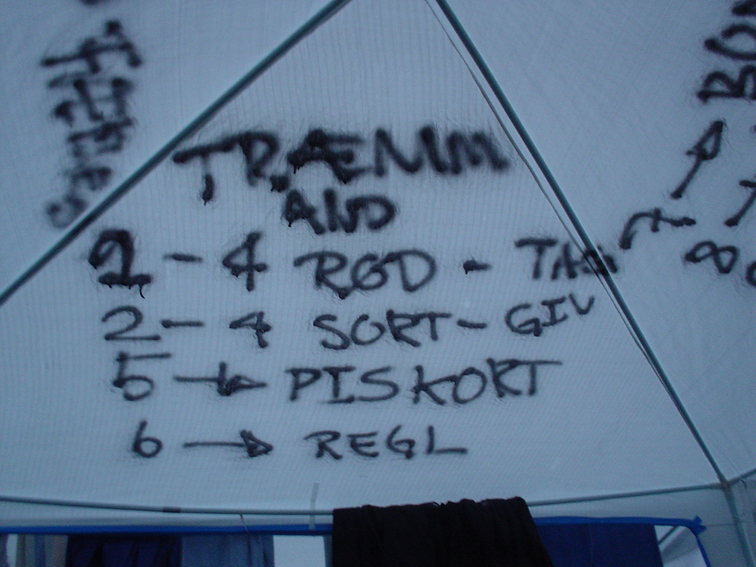 TRÆMM
AND
2 - 4 RØD - TAG
2 - 4 SORT - GIV
5 → PISKORT
6 → REGL
8